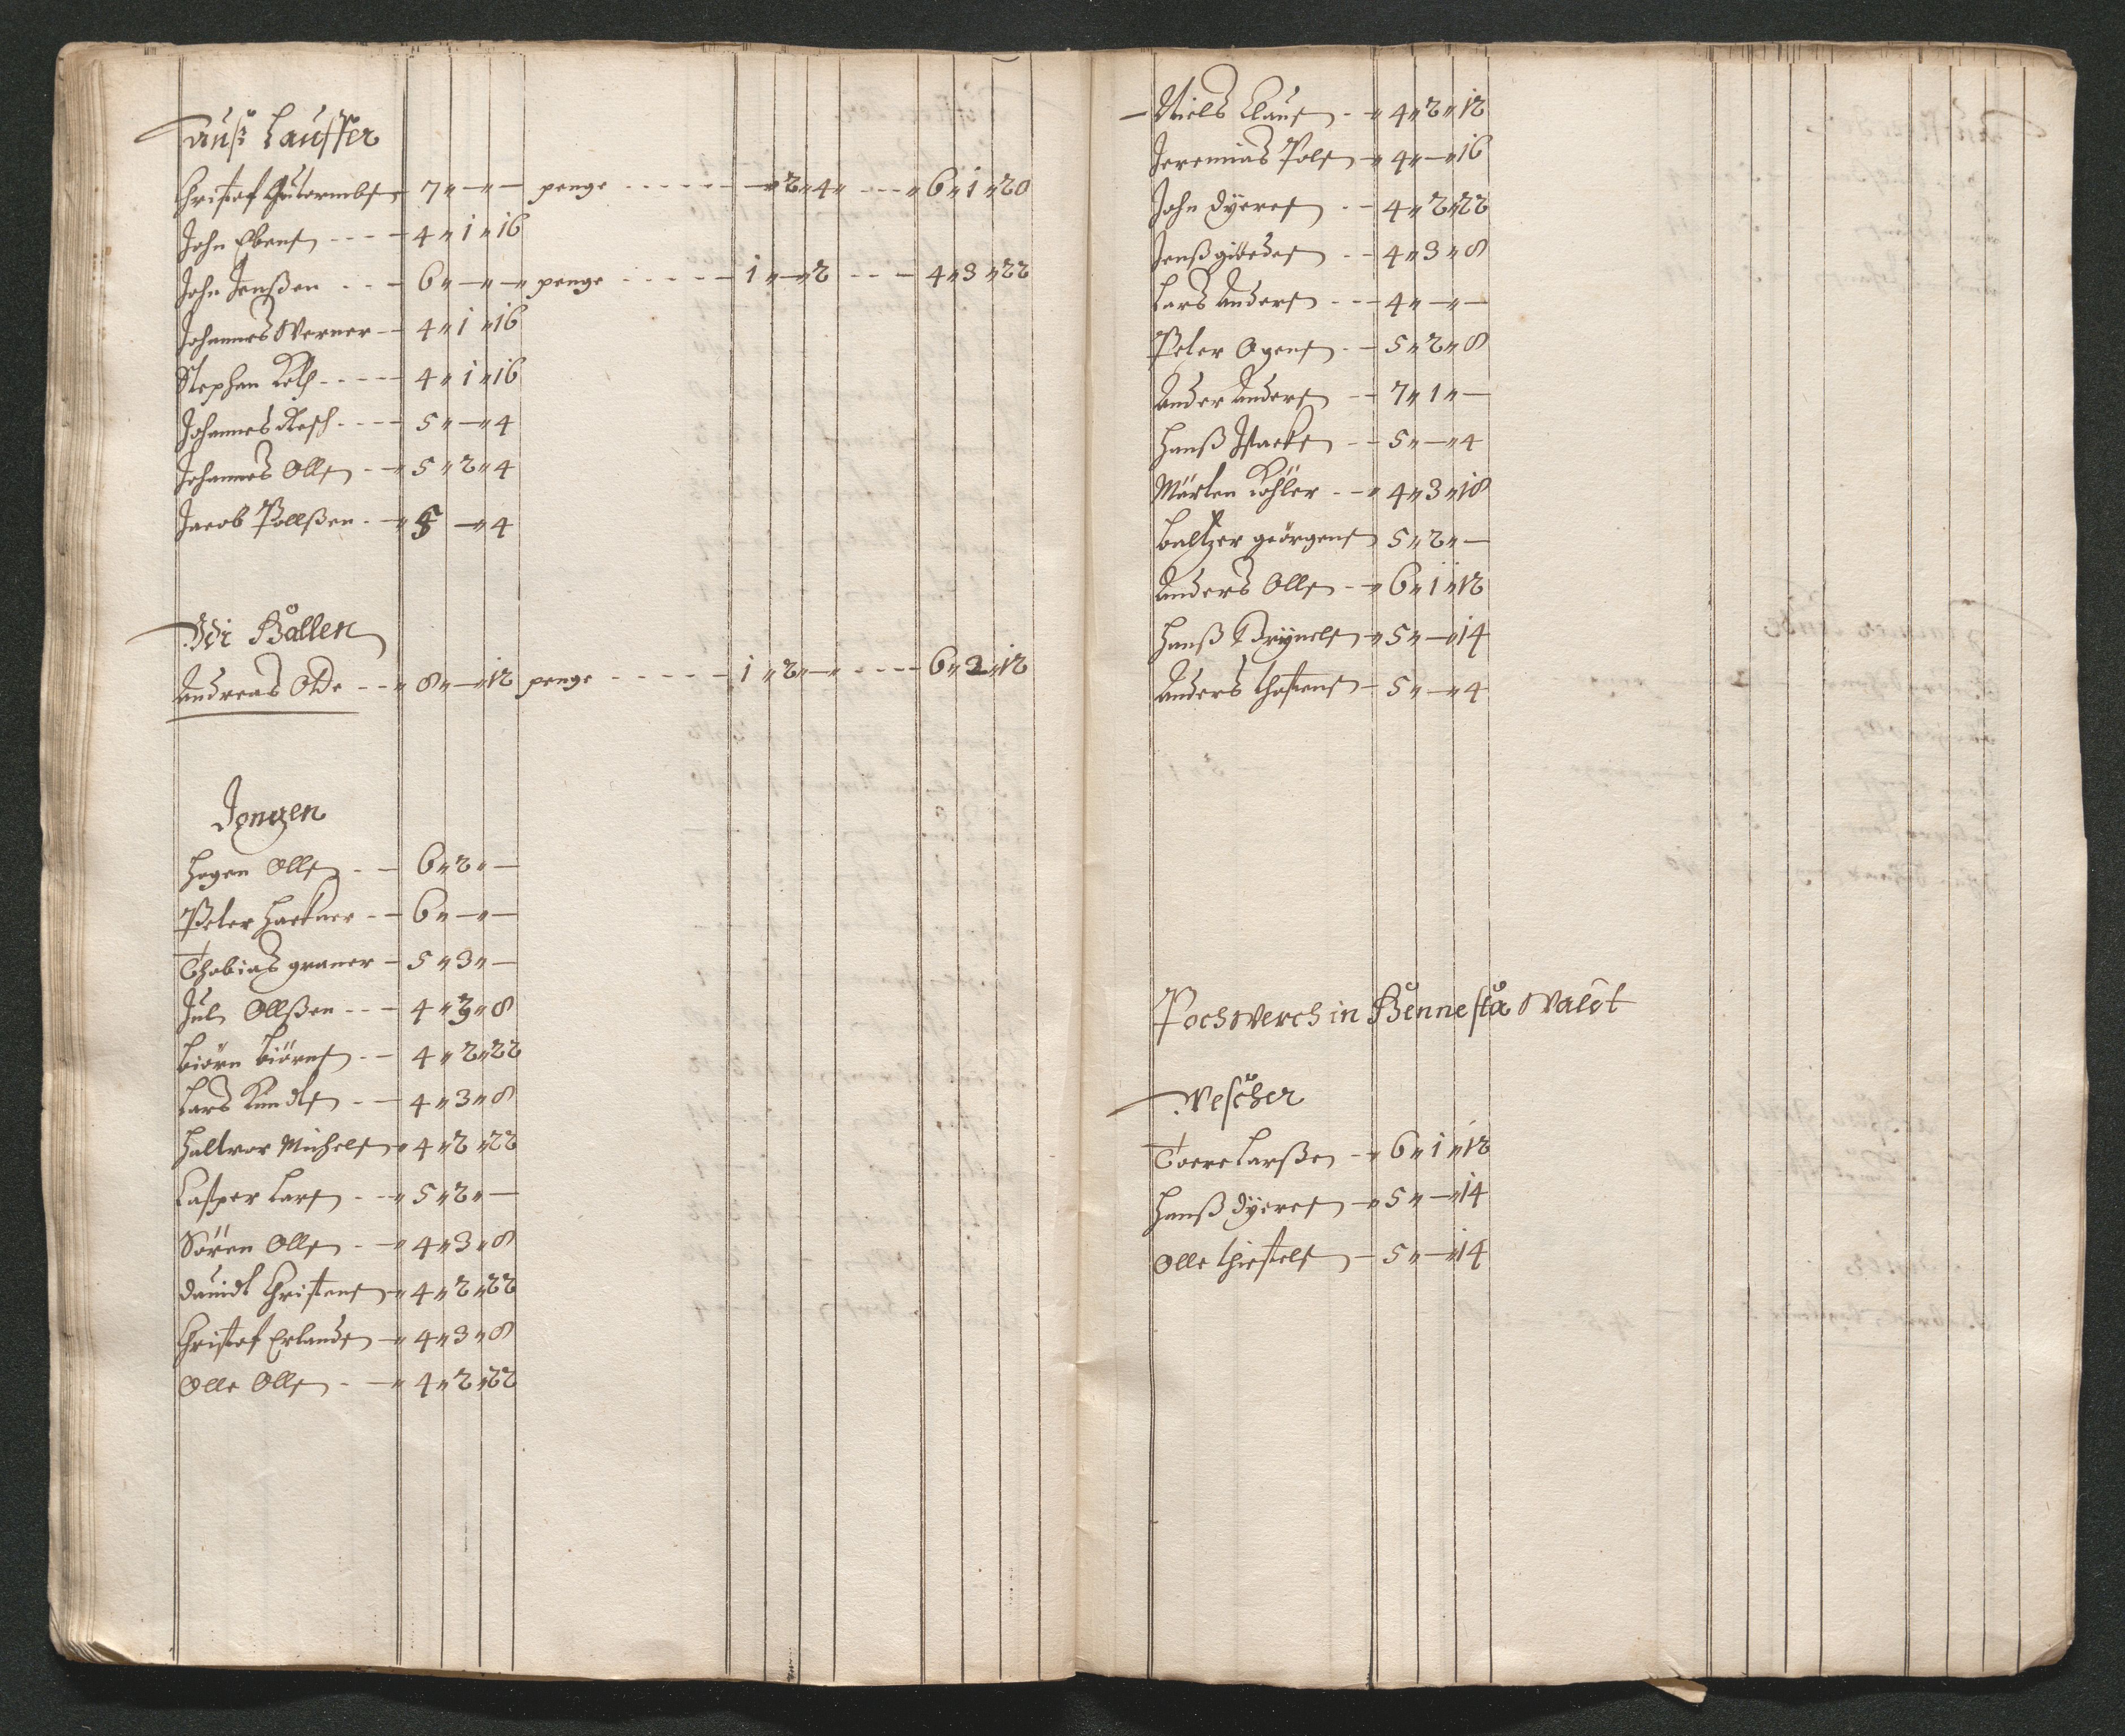 Auß Lauffer
Christof Gutermbs 7 " — " — penge — " 2 " 4 " 6 " 1 " 20
John Ebens 4 " 1 " 16
John Jenßen 6 " — " — penge 1 " — " 2 4 " 3 " 22
Johannes Werner 4 " 1 " 16
Stephan Kolb 4 " 1 " 16
Johannes Resch 5 " — " 4
Johannes Olls 5 " 2 " 4
Jacob Pollßen 5 — " 4
Bei Bållen
Andreas Otde 8 " — " 12 penge 1 " 2 " — " 6 " 2 " 12
Jongen
Hogen Olls 6 " 2 " —
Peter Harkner 6 " — " —
Thobias graner 5 " 3 " —
Jul Ollßen 4 " 3 " 8
Biörn Biörns 4 " 2 " 22
Lars Knudts 4 " 3 " 8
Haltvor Michels 4 " 2 " 22
Casper Lars 5 " 2 " —
Sören Olls 4 " 3 " 8
Dauidt Christens 4 " 2 " 22
Christof Erlands 4 " 3 " 8
Olle Olls 4 " 2 " 22
Niels Claus 4 " 2 " 12
Jeremias Pols 4 " — " 16
John Dyeres 4 " 2 " 22
Jenß 4 " 3 " 8
Lars Anders 4 " — " —
Peter Agens 5 " 2 " 8
Ander Anders 7 " 1 " —
Hanß Isacks 5 " — " 4
Märten Köhler 4 " 3 " 18
Baltzer geörgens 5 " 2 " —
Anders Olls 6 " 1 " 12
Hanß Brynels 5 " — " 14
Anders Chostens 5 " — " 4
Pochwerch in Bennestå Waldt
Wescher
Toere Larßen 6 " 1 " 12
Hanß Dyeres 5 " — " 14
Olle Chiestels 5 " — " 14